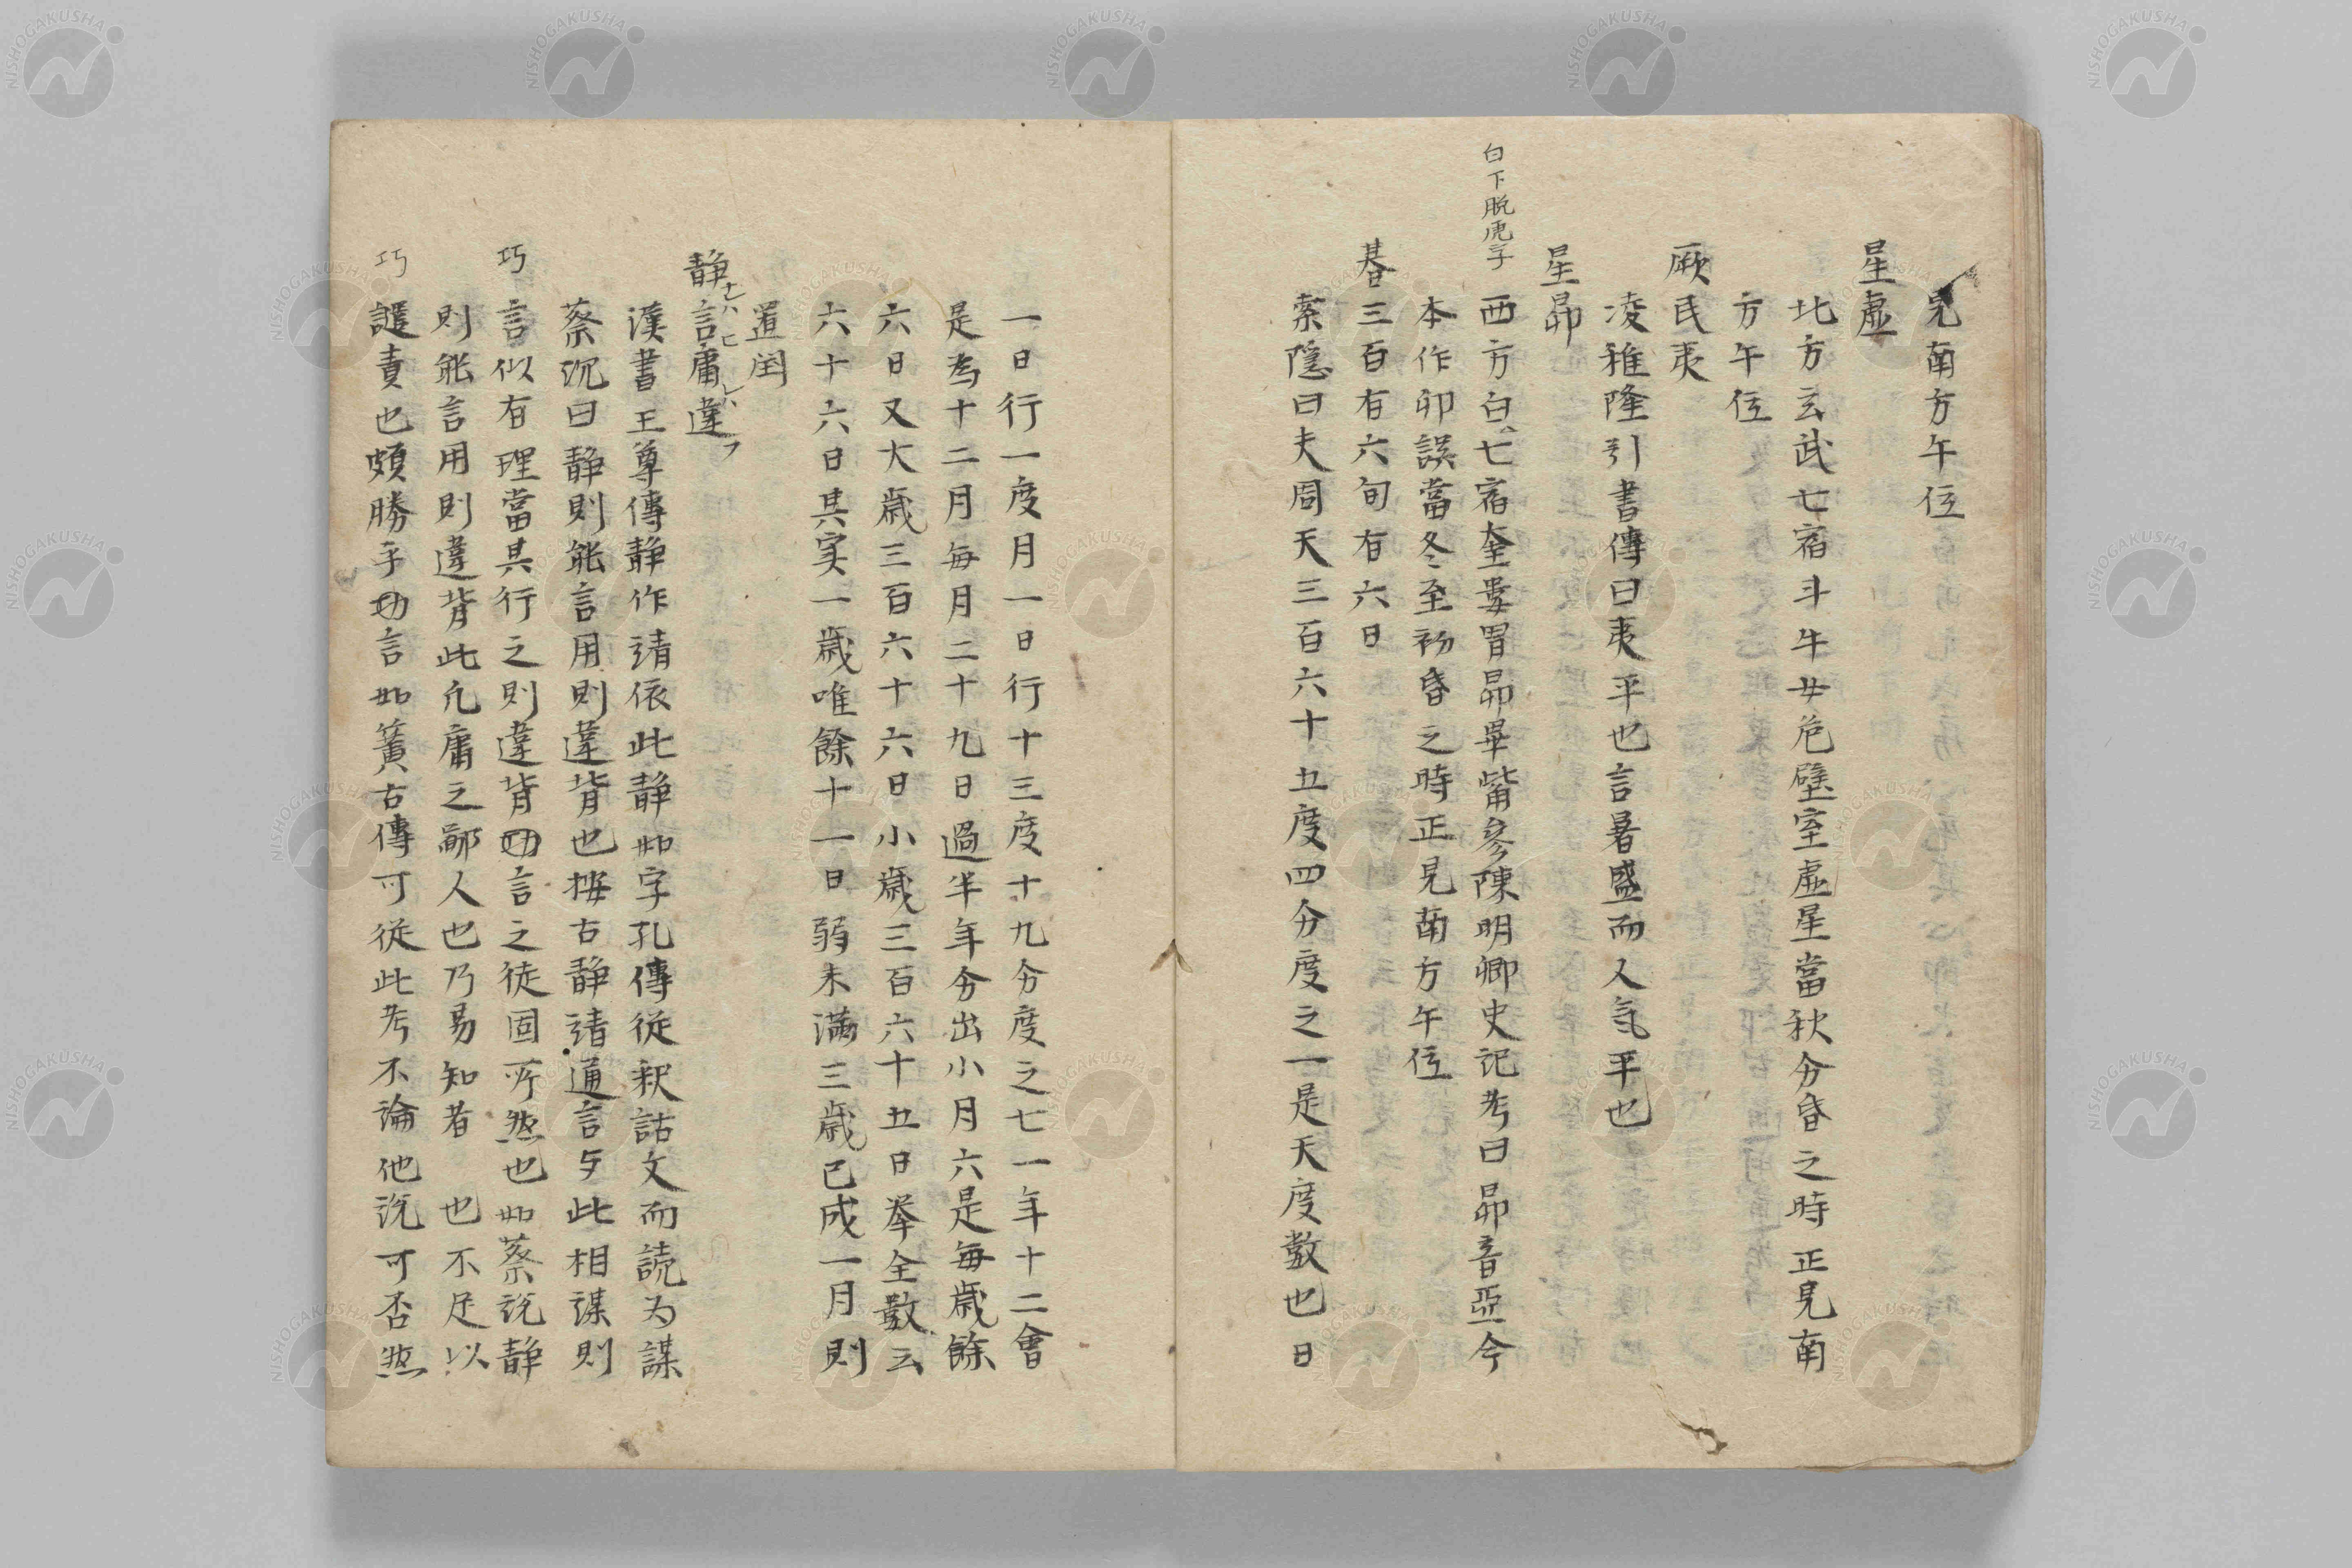 見南方午位
星虚
北方玄武七宿斗牛女危壁室虚星當秋分昏之時正見南
方午位
厥民夷
凌稚隆引書傳曰夷平也言暑盛而人氣平也
星昴
白下脱虎字
西方白七宿奎婁胃昴畢觜參陳明卿史記考曰昴音亞今
本作卯誤當冬至初昏之時正見南方午位
朞三百有六旬有六日
索隠曰夫周天三百六十五度四分度之一是天度數也日
一日行一度月一日行十三度十九分度之七一年十二會
是為十二月每月二十九日過半年分出小月六是每歳餘
六日又大歳三百六十六日小歳三百六十五日举全數云
六十六日其実一歳唯餘十一日弱未滿三歳已成一月則
置閏
静言庸違
漢書王尊傳静作靖依此静如字孔傳從釈詁文而読为謀
蔡沉曰静則能言用則違背也按古静靖通言与此相謀則
巧
言似有理當其行之則違背言之徒固所然也如蔡说静
則能言用則違背此凢庸之鄙人也乃易知者也不足以
巧
譴責也頗勝于言如簧古傳可從此考不論他说可否然
NISHOGAKUSHA